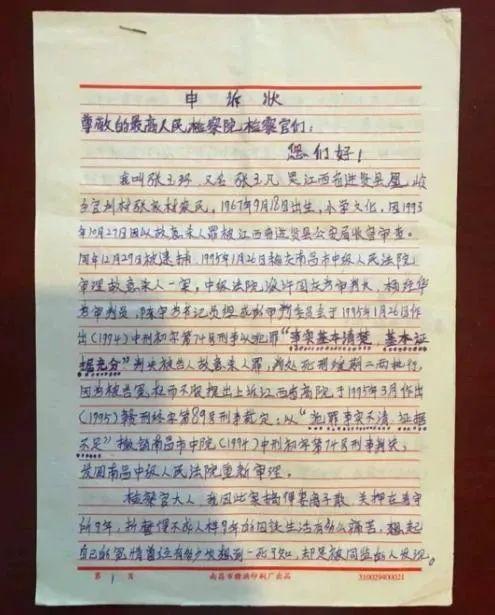 申诉状
尊敬的最高人民检察院检察官们：
您们好！
我叫张玉环 又名 张玉凡 是江西省进贤县凰岭
乡官圳村张家村农民，1967年9月18日出生，小学文化，因1993
年10月27日因以故意杀人罪被江西省进贤县公安局收容审查。
同年12月29日被逮捕，1995年1月26日南昌市中级人民法院
审理故意杀人一案，中级法院
为审判员，书记员组成 审判委员会于1995年1月26日作
出(1994)中刑初字第74号刑事以犯罪“事实基本清楚，基本证
据充分”判决被告人故意杀人罪，判处死刑缓期二两执行，
因为被告冤枉而不服提出上诉江西省高院于1995年3月作出
(1995)赣刑终字第89号刑事裁定：以“犯罪事实不清，证据
不足”撤销南昌市中院(1994)中刑初字第74号刑事判决，
发回南昌中级人民法院重新审理。
检察官大人，我因此案搞得妻离子散，关押在看守
所9年，折磨得不成人样9年的囚徒生活有多么痛苦，想起
自己的冤情曾经有多少次想到一死了知，却是被同监的人发现。
第 1 页
南昌市赣浜印刷厂出品
310029400021